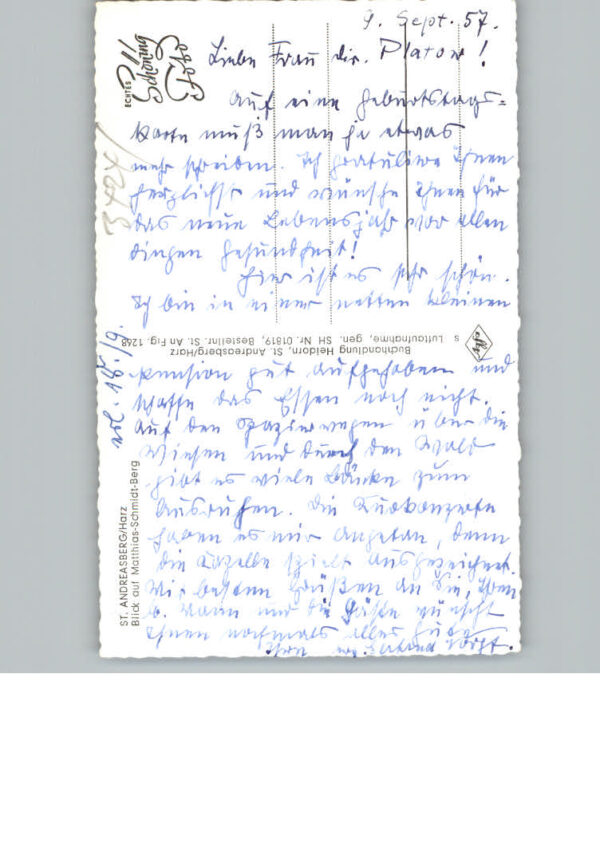 9. Sept. 57.
Liebe Frau Dir. Platow!
Auf eine Geburtstags-
karte muß man ja etwas
mehr schreiben. Ich gratuliere Ihnen
herzlichst und wünsche Ihnen für
das neue Lebensjahr vor allen
Dingen Gesundheit!
Hier ist es sehr schön.
Ich bin in einer netten kleinen
Pension gut aufgehoben und
schaffe das Essen noch nicht.
Auf den Spazierwegen über die
Wiesen und durch den Wald
gibt es viele Bänke zum
Ausruhen. Die Kurkonzerte
haben es mir angetan, denn
die Kapelle spielt ausgezeichnet.
Mit besten Grüßen an Sie, Ihren
lb. Mann und die Gäste wünscht
Ihnen nochmals alles Gute
Ihre
ECHTES
Schöning
Foto
3424/
18./9.
Buchhandlung Heidorn, St. Andreasberg/Harz
s Luftaufnahme, gen. SH Nr. 01819, Bestellnr. St. An Fig. 1248
Agfa
ST. ANDREASBERG/Harz
Blick auf Matthias-Schmidt-Berg